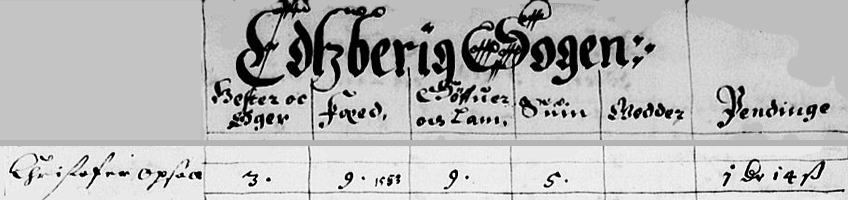 Edtzberig Sogen
Hester oc Øger Fæed. Söffuer och Lam. Suin Wedder Pendinge
Christofer opsaa 3. 9. 1583 9. 5. 1 dr 14 ß